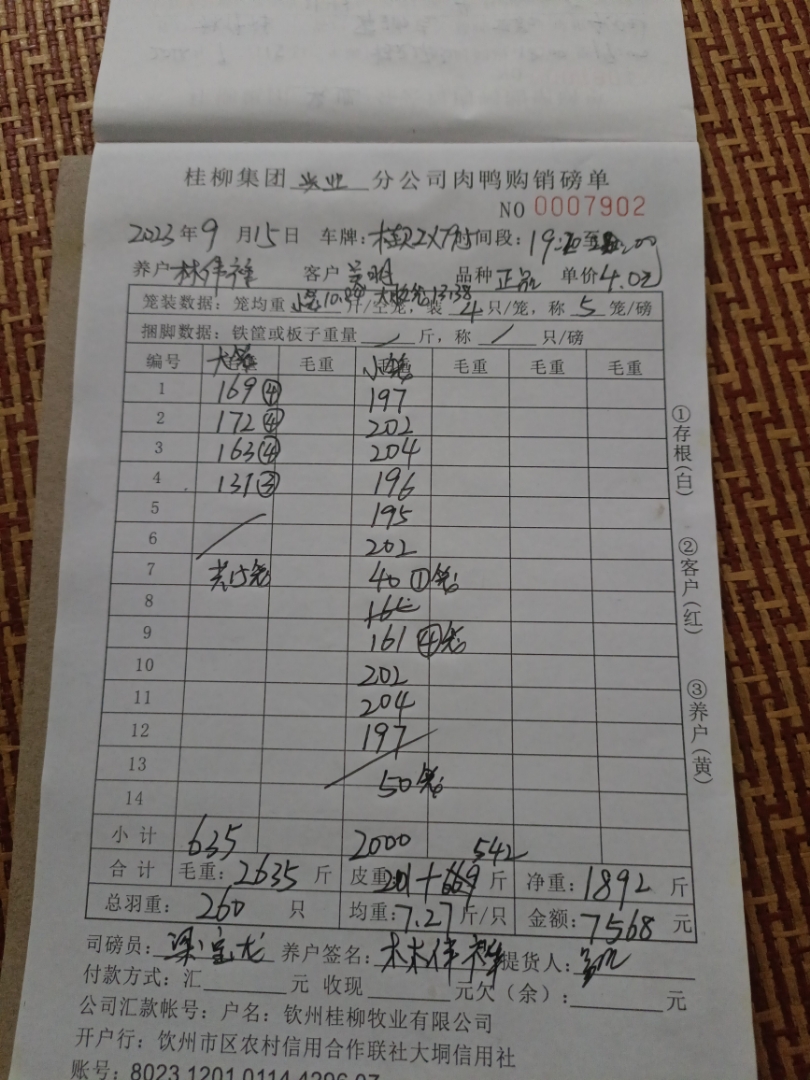 桂柳集团 兴业 分公司肉鸭购销磅单
NO 0007902
2023年9月15日 车牌: 时间段: 至
养户林伟祥 客户 品种正品 单价4.0元
笼装数据: 笼均重 小笼10.84 大笼13.38 斤/空笼, 装4只/笼, 称5笼/磅
捆脚数据: 铁筐或板子重量 / 斤, 称 / 只/磅
编号 大笼 毛重 小笼 毛重 毛重 毛重
1 169④ 197
2 172④ 202
3 163④ 204
4 131③ 196
5 195
6 202
7 共15笼 40①笼
8
9 161④笼
10 202
11 204
12 197
13
14 50笼
小计 635 2000 542
合计 毛重: 2635斤 皮重: 201+669斤 净重: 1892斤
总羽重: 260只 均重: 7.27斤/只 金额: 7568元
司磅员: 梁宝龙 养户签名: 林伟祥 提货人:
付款方式: 汇 元 收现 元欠(余): 元
公司汇款帐号: 户名: 钦州桂柳牧业有限公司
开户行: 钦州市区农村信用合作联社大垌信用社
账号: 8023 1201 0114 4296 07
①存根(白)
②客户(红)
③养户(黄)